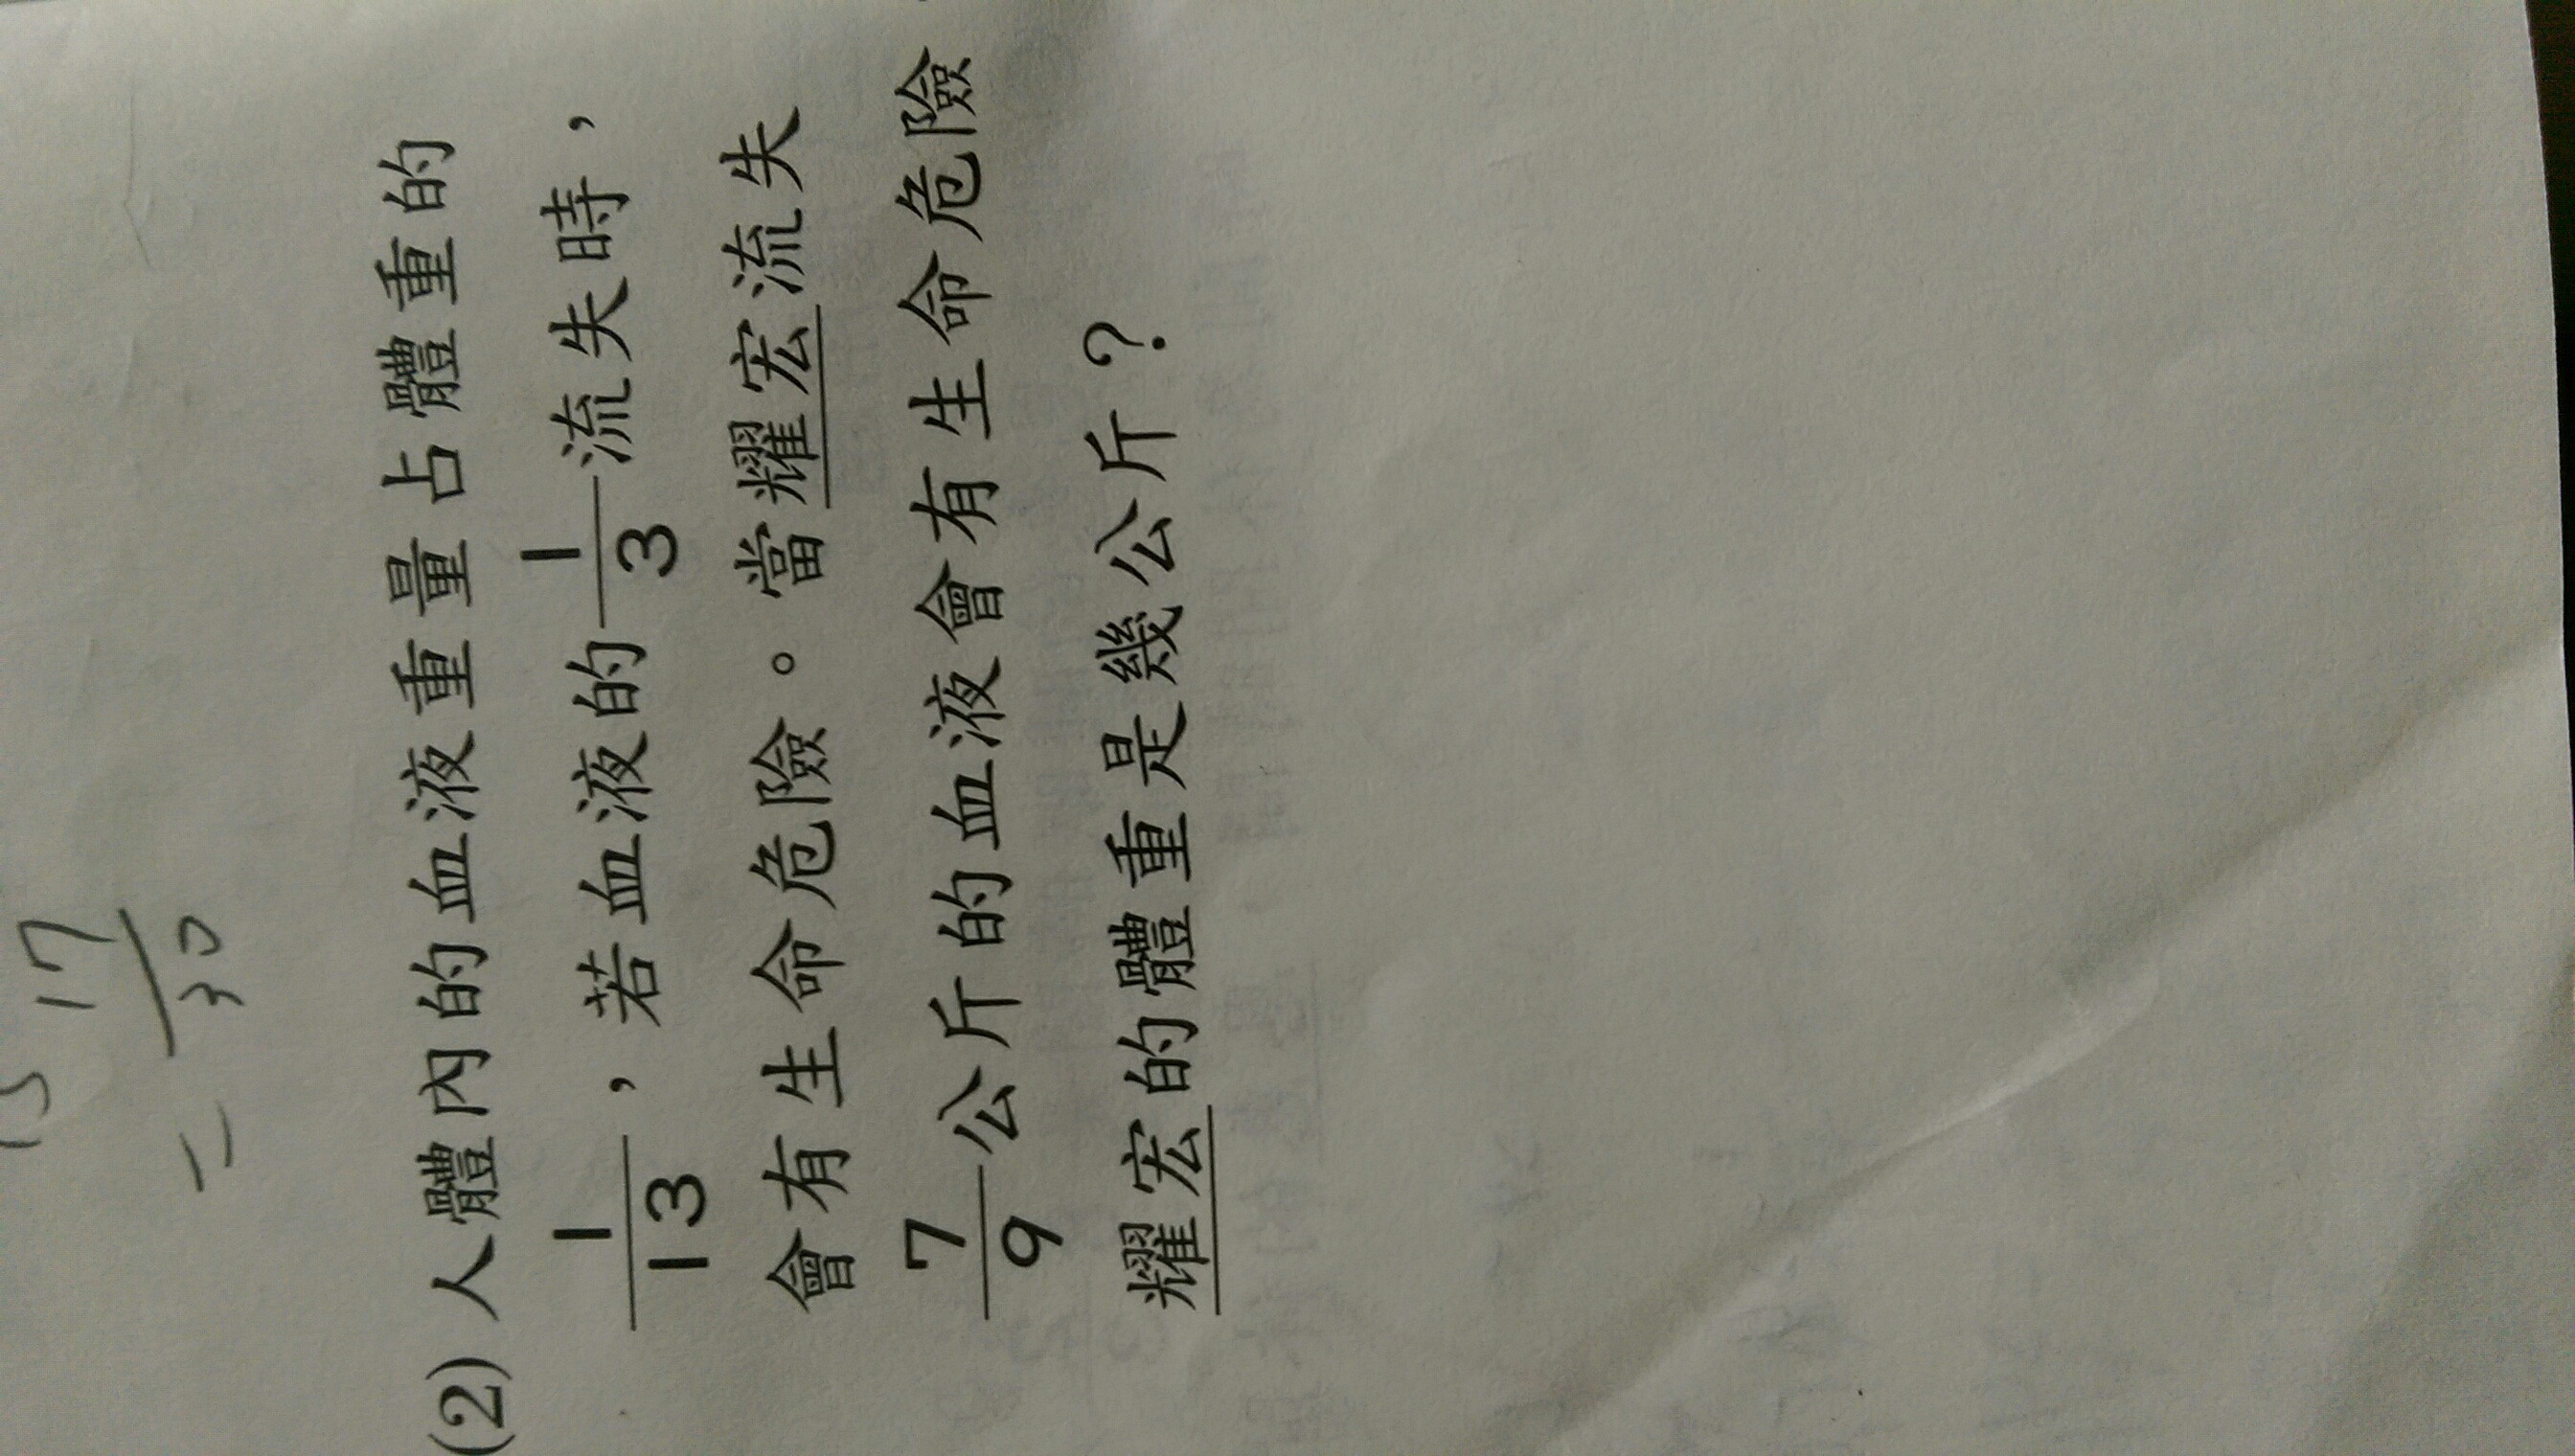 15 17
= 17/30
(2) 人體內的血液重量占體重的
1/13，若血液的1/3流失時，
會有生命危險。當耀宏流失
7/9公斤的血液會有生命危險
耀宏的體重是幾公斤？